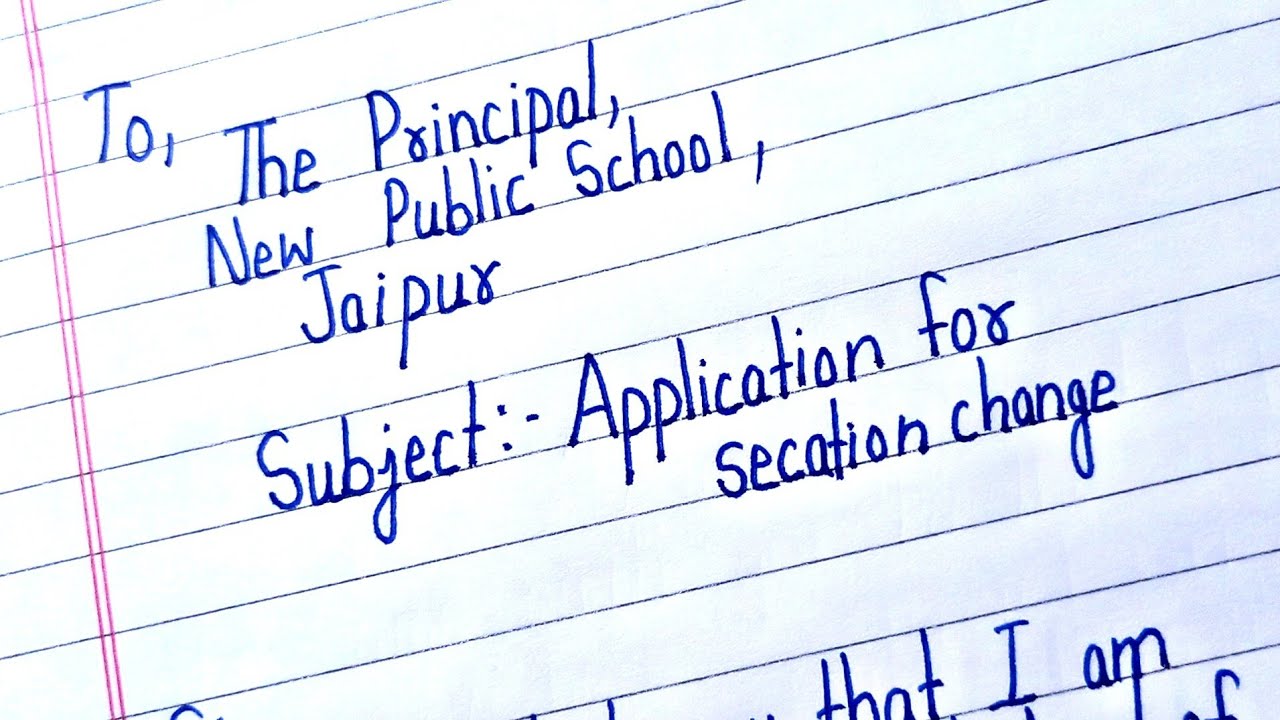 To,
The Principal,
New Public School,
Jaipur
Subject:- Application for
secation change
that I am
of